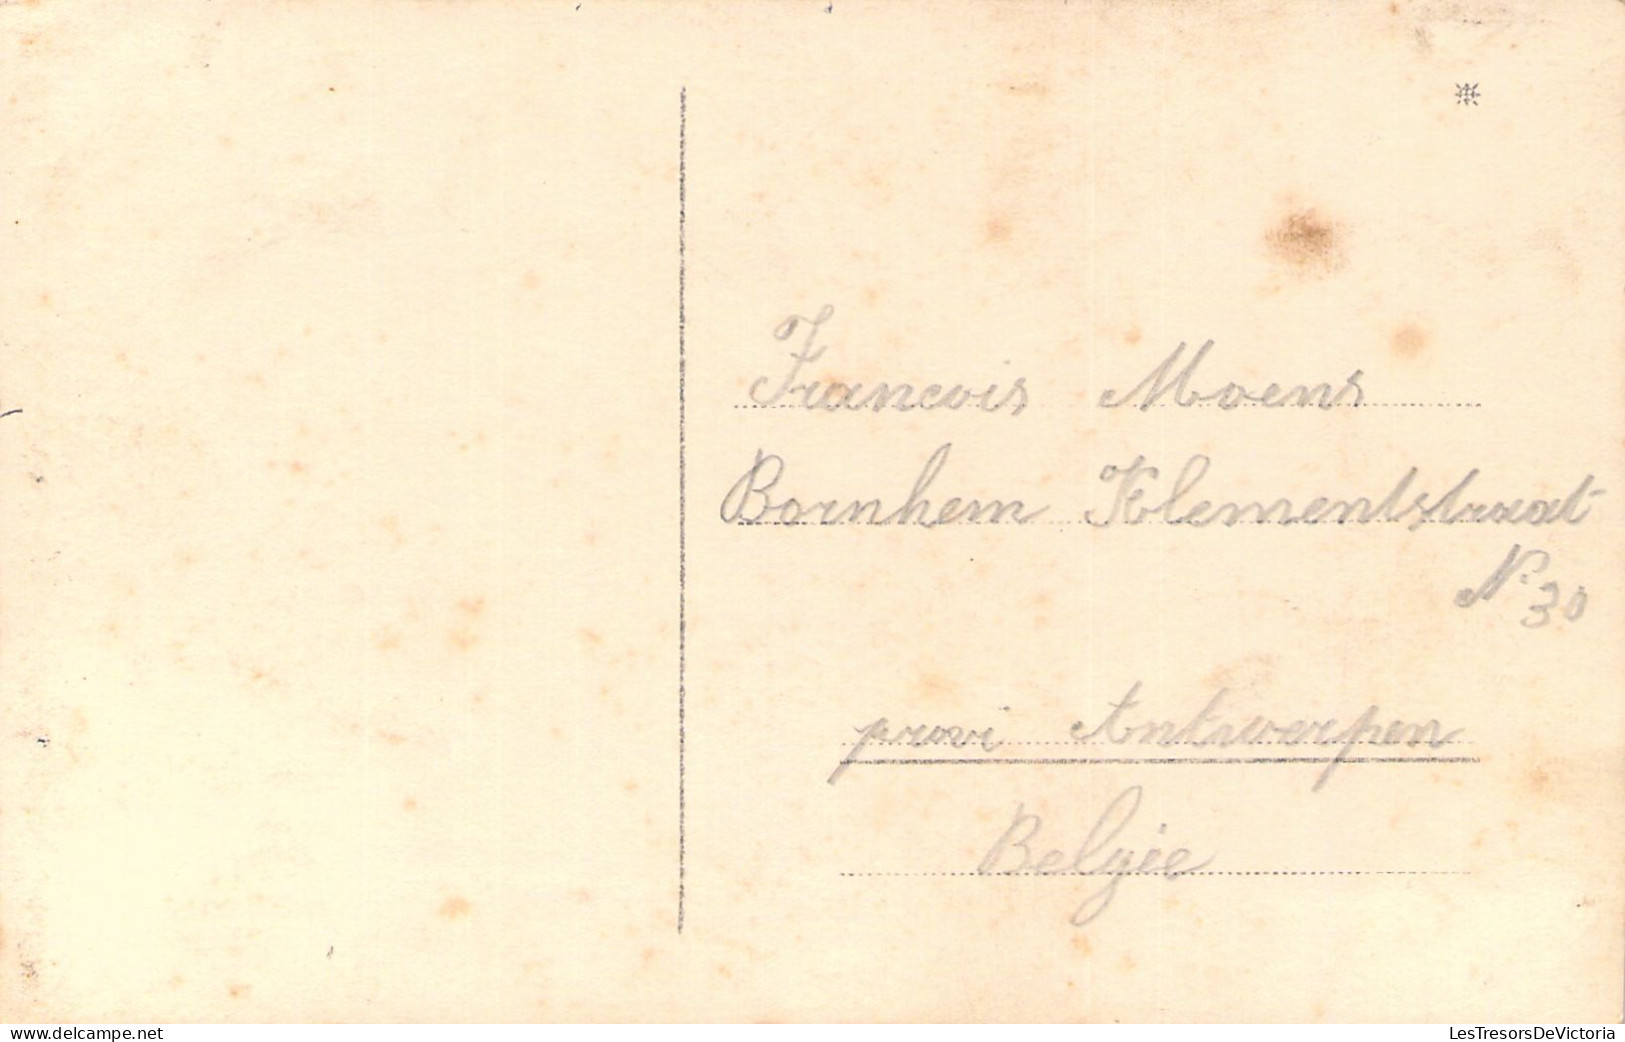 Francois Moens
Bornhem Klementstraat
N. 30
provi Antwerpen
Belgie
www.delcampe.net
LesTresorsDeVictoria